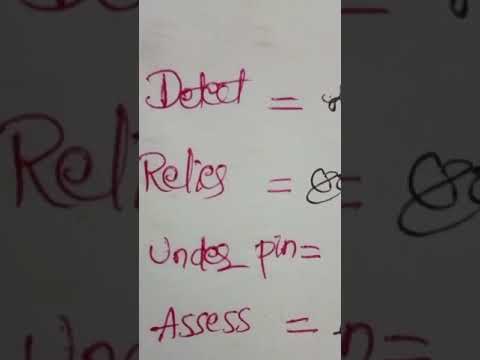 Detect =
Relies =
Under pin =
Assess =